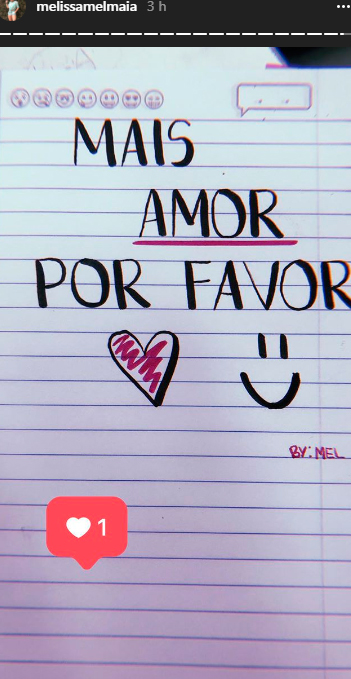 melissamelmaia 3 h
MAIS
AMOR
POR FAVOR
BY: MEL
1